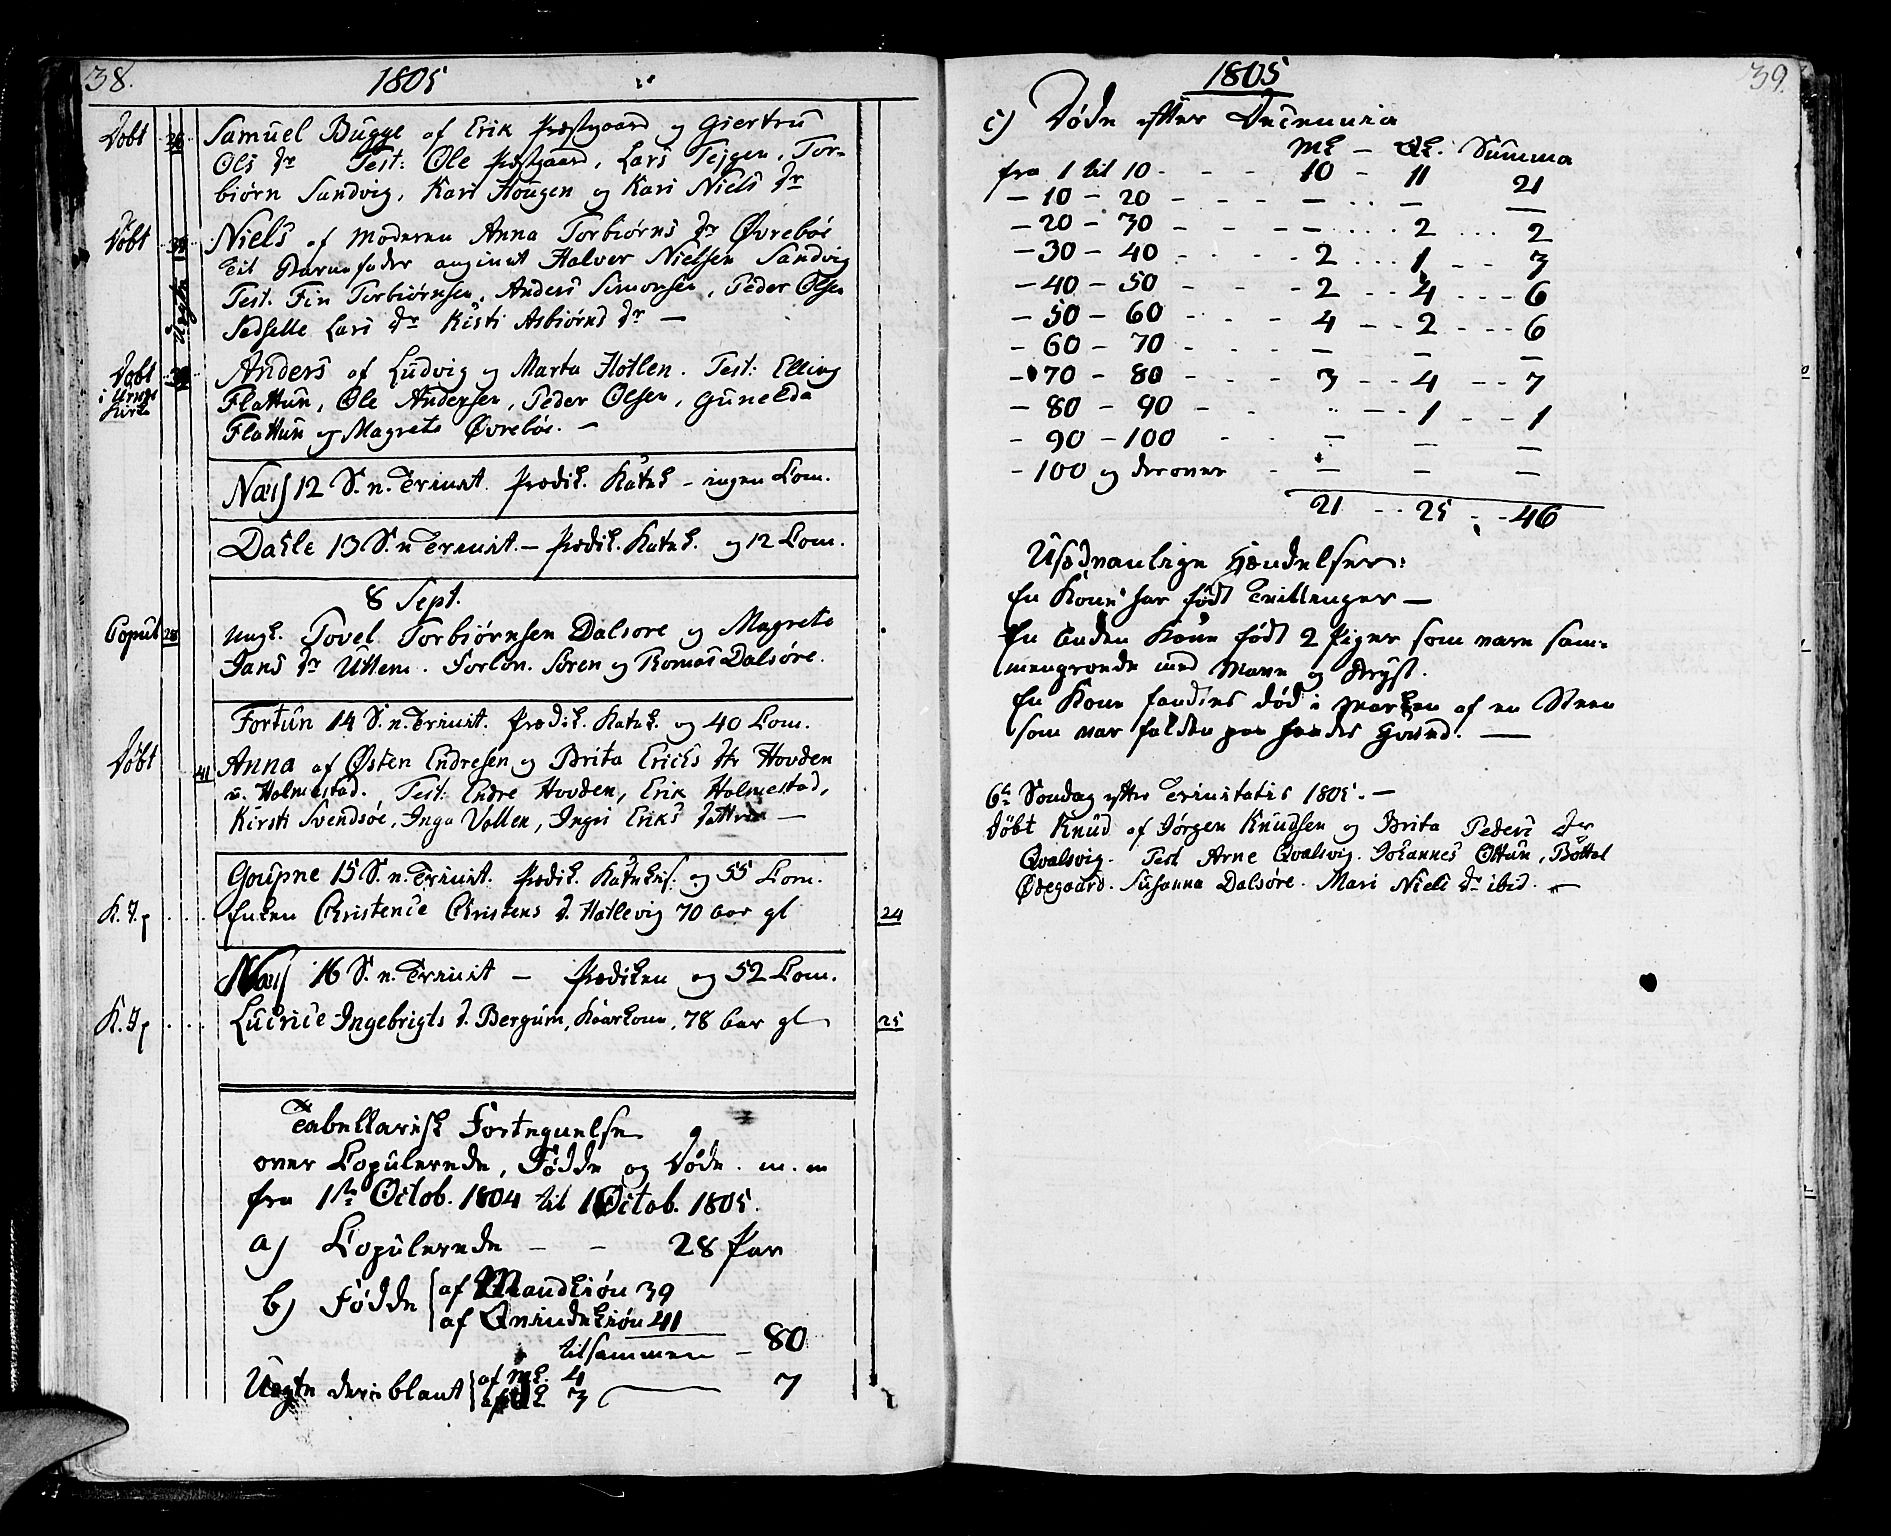 38.
1805
Døbt
Samuel Bugge af Erik Præstgaard og Giertru
Ols dr Test: Ole Præstgaard, Lars Tejgen, Tor-
biørn Sandvig, Kari Hougen og Kari Niels dr
Døbt
Uægte
Niels af Moderen Anna Torbiørns dr Øvrebøe
til Barnefader angivet Halvor Nielsen Sandvig
Test. Fin Torbiørnsen, Anders Simonsen, Peder Olsen
Sedselle Lars dr Kisti Asbiørns dr —
Døbt
i Urnes
Kirke
Anders af Ludvig og Marta Hotlen. Test: Elling
Flattun, Ole Andersen, Peder Olsen, Gunelda
Flattun og Magrete Øvrebøe. —
Næs 12 S. n. Trinit. Prædik. Katek – ingen Com.
Dahle 13 S. n Trinit. – Prædik. Katek. og 12 Com.
8 Sept.
Copul 28
Ungk. Tovel Torbiørnsen Dalsøre og Magrete
Jans dr Uttem. Forlov. Søren og Thomas Dalsøre.
Fortun 14 S. n. Trinit. Prædik. Katek. og 40 Com.
Døbt 41
Anna af Østen Endresen og Brita Erichs dr Hovden
v. Holmestad. Test: Endre Hovden, Erik Holmestad,
Kirsti Svendsøe, Inga Vollen, Ingri Eriks datter —
Goupne 15 S. n. Trinit. Prædik. Katekis. og 55 Com.
K. J. p . . . Enken Christence Christens d. Hatlevig 70 aar gl 24
Næs 16 S. n. Trinit – Prædiken og 52 Com.
K. J. p . . . Lucrice Ingebrigts d. Bergum, Kaarkone, 78 aar gl 25
Tabellarisk Fortegnelse
over Copulerede, Fødde og Døde. m. m
fra 1ste Octob. 1804 til 1 Octob. 1805.
a) Copulerede – – 28 Par
b) Fødde af Mandkiøn 39
af Qvindekiøn 41
tilsammen – 80
Uægte deriblant af MK. 4
af QK 3 — 7
39.
1805
c) Døde efter Decennia
MK – QK. Summa
fra 1 til 10 - - - 10 - 11 21
– 10 – 20 - - - – . . – —
– 20 – 30 - - - – . . . 2 . . . 2
– 30 – 40 - - - 2 . . . 1 - - 3
– 40 – 50 - - - 2 - - 4 - - - 6
– 50 – 60 - - - 4 - - 2 - - - 6
– 60 – 70 - - – – –
– 70 – 80 - - - 3 - - 4 - - 7
– 80 – 90 - - . . - - 1 - - 1
- 90 – 100 - - – – –
- 100 og derover - – – –
21 - - 25 - - 46
Usædvanlige Hændelser:
En Kone har født Trillinger —
En anden Kone født 2 Piger som vare sam-
mengroede med Mave og Bryst.
En Kone fandtes død i Marken af en Steen
som var falden paa hendes Hoved. —
6te Søndag efter Trinitatis 1805. —
Døbt Knud af Jørgen Knudsen og Brita Peders dr
Qvalsvig. Test Arne Qvalsvig. Johannes Ottun, Bottol
Ødegaard. Susanna Dalsøre. Mari Niels dr ibid. —